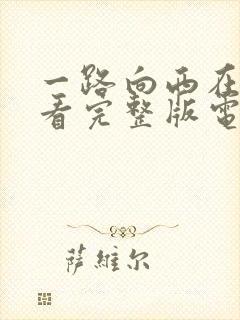 一路向西在
看完整版電
萨維尔